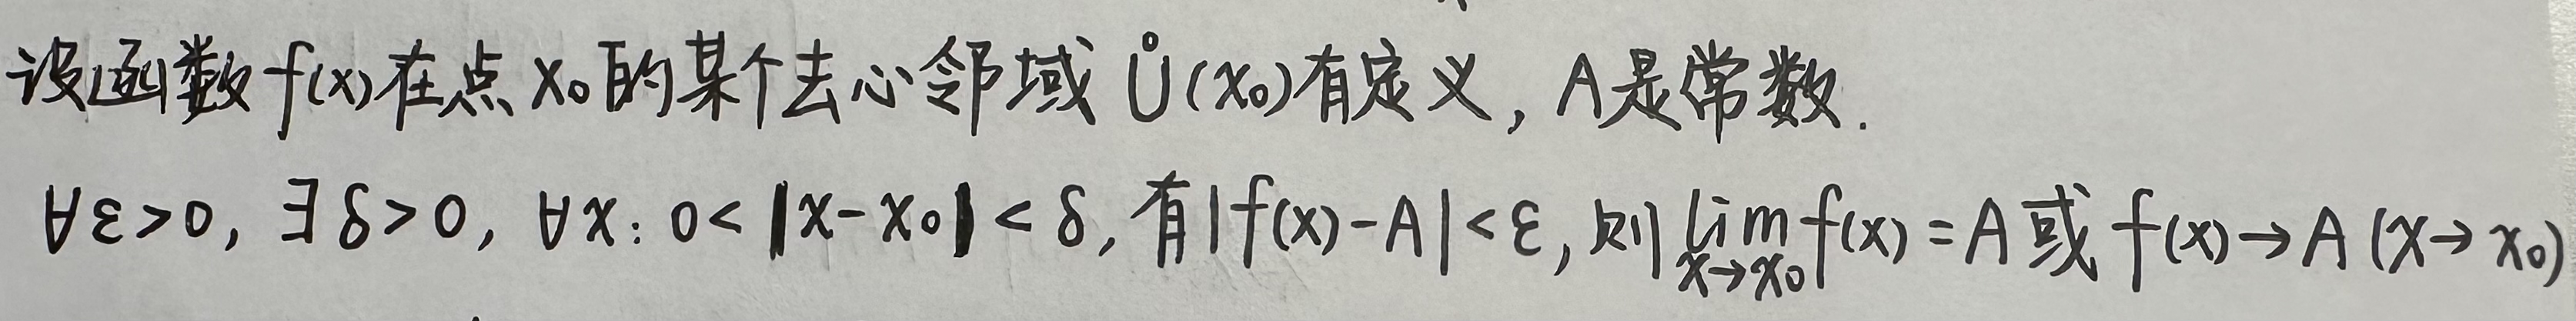 设函数 f(x) 在点 x₀ 的某个去心邻域 Ů(x₀) 有定义, A是常数.
∀ε>0, ∃δ>0, ∀x: 0<|x-x₀|<δ, 有|f(x)-A|<ε, 则 lim_{x→x₀} f(x)=A 或 f(x)→A (x→x₀)